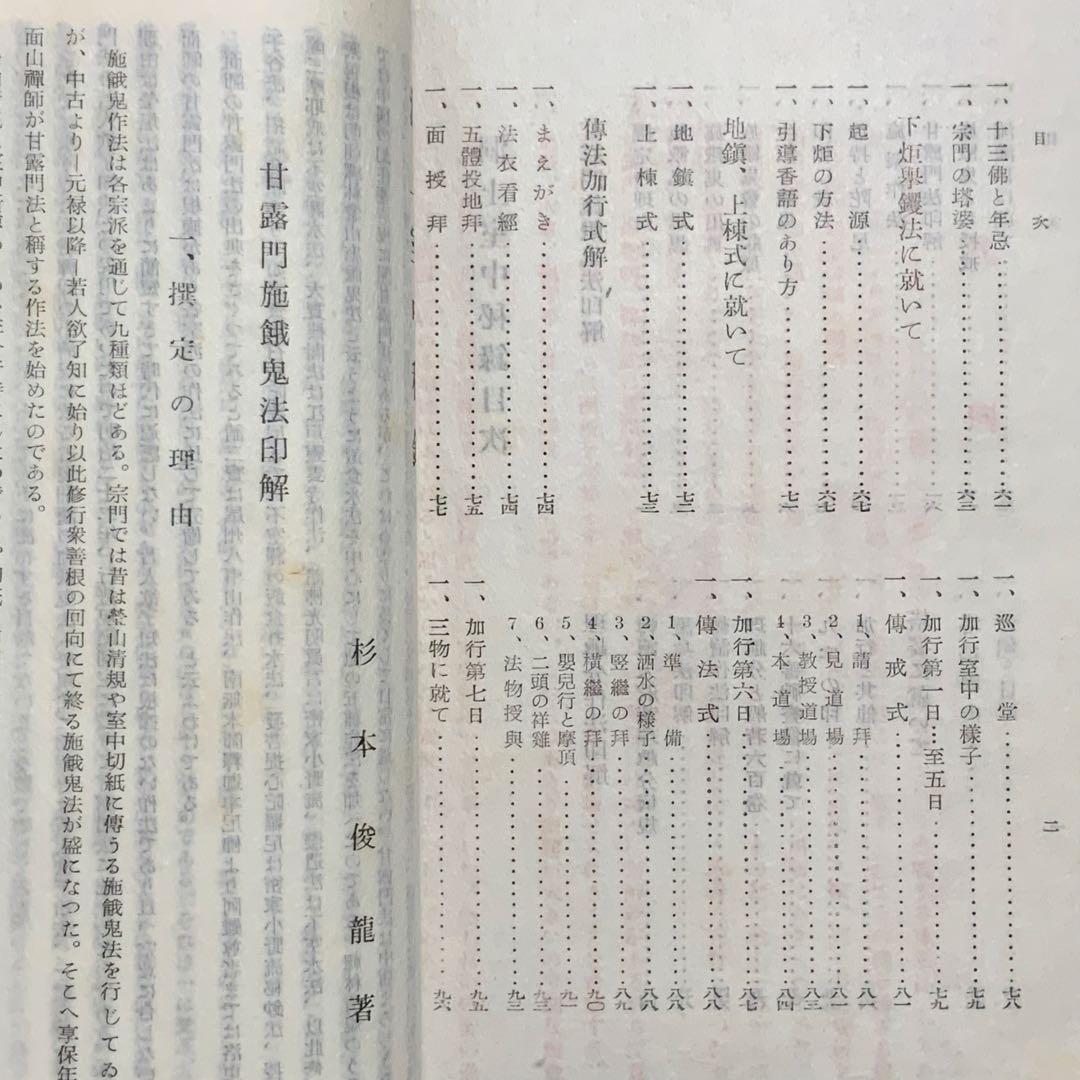 目次
二
一、十三佛と年忌……六一
一、宗門の塔婆……六三
下炬擧钁法に就いて
一、起源……六七
一、下炬の方法……六七
一、引導香語のあり方……七一
地鎭、上棟式に就いて
一、地鎭式……七三
一、上棟式……七三
傳法加行式解
一、まえがき……七四
一、法衣看經……七四
一、五體投地拜……七五
一、面授拜……七七
一、巡堂……七八
一、加行室中の樣子……七九
一、加行第一日…至五日……七九
一、傳戒式……八一
1、請拜……八一
2、見道場……八一
3、教授道場……八三
4、本道場……八四
一、加行第六日……八七
一、傳法式……八八
1、準備……八八
2、洒水の樣子……八八
3、竪繼の拜……八九
4、橫繼の拜……九〇
5、嬰兒行と摩頂……九一
6、二頭の祥雞……九三
7、法物授與……九三
一、加行第七日……九五
一、三物に就て……九六
杉本俊龍著
甘露門施餓鬼法印解
一、撰定の理由
施餓鬼作法は各宗派を通じて九種類ほどある。宗門では昔は瑩山清規や室中切紙に傳うる施餓鬼法を行じてゐ
が、中古より―元禄以降―若人欲了知に始り以此修行衆善根の回向にて終る施餓鬼法が盛になつた。そこへ享保年
面山禪師が甘露門法と稱する作法を始めたのである。